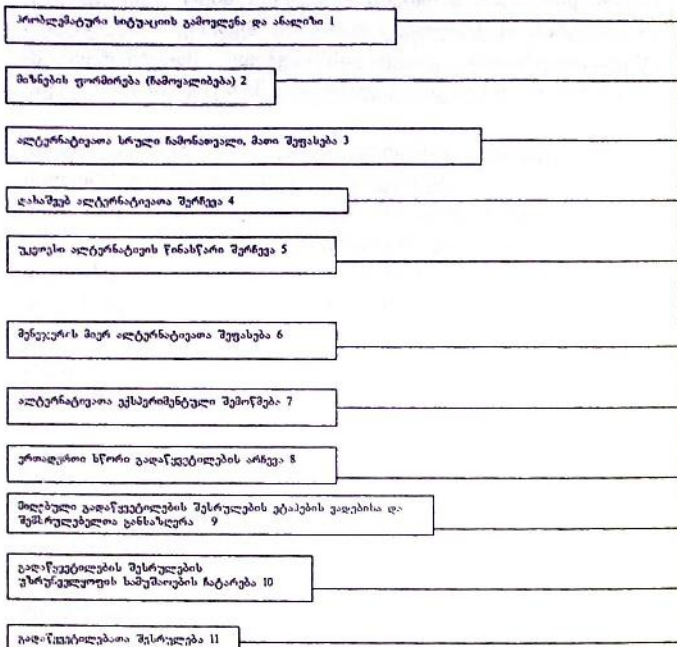 პრობლემატური სიტუაციის გამოვლენა და ანალიზი 1
მიზნების ფორმირება (ჩამოყალიბება) 2
ალტერნატივათა სრული ჩამონათვალი, მათი შეფასება 3
დასაშვებ ალტერნატივათა შერჩევა 4
უკეთესი ალტერნატივის წინასწარი შერჩევა 5
მენეჯერის მიერ ალტერნატივათა შეფასება 6
ალტერნატივათა ექსპერიმენტული შემოწმება 7
ერთადერთი სწორი გადაწყვეტილების არჩევა 8
მიღებული გადაწყვეტილების შესრულების ეტაპების ვადებისა და
შემსრულებელთა განსაზღვრა 9
გადაწყვეტილების შესრულების
უზრუნველყოფის სამუშაოების ჩატარება 10
გადაწყვეტილებათა შესრულება 11